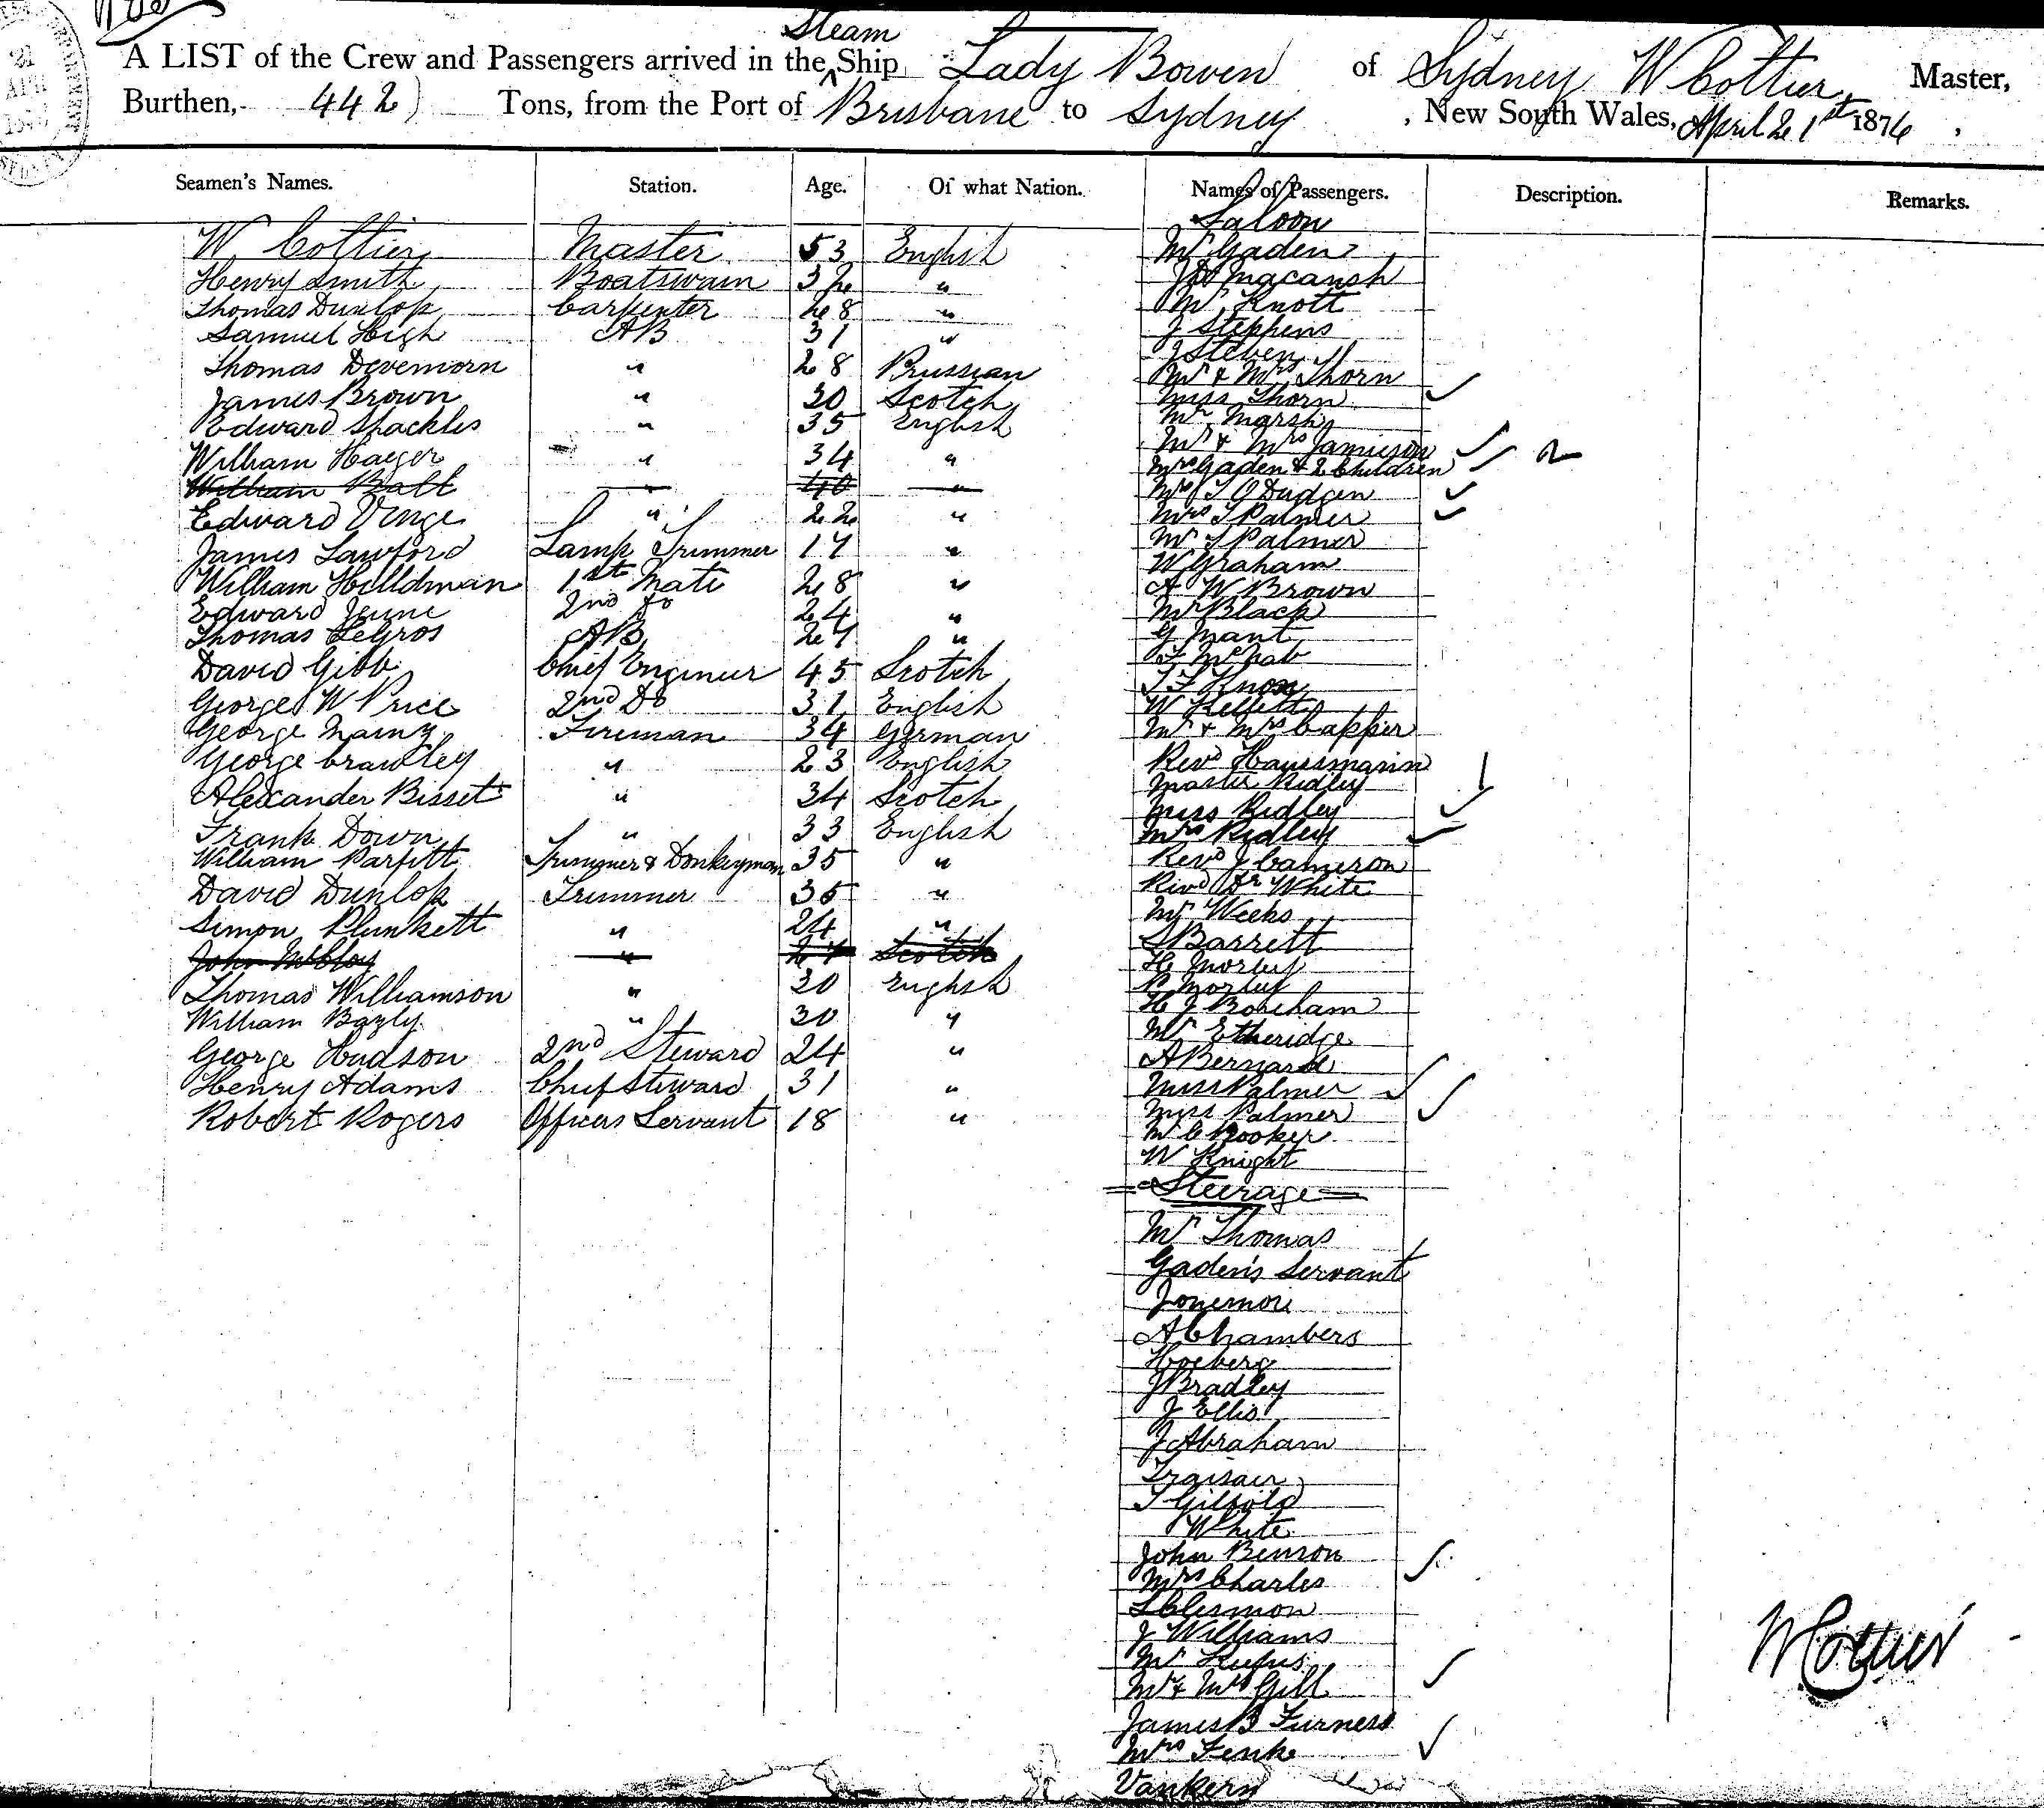 Steam
A LIST of the Crew and Passengers arrived in the Ship Lady Bowen of Sydney W Cottier, Master,
Burthen, 442 Tons, from the Port of Brisbane to Sydney, New South Wales, April 21st 1876,
Seamen's Names. Station. Age. Of what Nation. Names of Passengers. Description. Remarks.
Saloon
W Cottier Master 53 English Mr Gaden
Henry Smith Boatswain 32 " J D Macansh
Thomas Dunlop Carpenter 28 " Mr Knott
Samuel High AB 31 " J Stephens
J Steven
Thomas Devemorn " 28 Prussian Mr & Mrs Thorn
James Brown " 30 Scotch Miss Thorn
Edward Shackles " 35 English Mr Marsh
Mr & Mrs Jamieson
William Haeger " 34 " Mrs Gaden & 2 Children
William Ball " 40 " Mrs T O Dudgen
Edward Vinge " 22 " Mrs T Palmer
James Lawford Lamp Trimmer 17 " Mr T Palmer
W Graham
William Hilldman 1st Mate 28 " A W Brown
Edward Jeune 2nd Do 24 " Mr Black
Thomas LeGros AB 27 " G Mant
F McNab
David Gibb Chief Engineer 45 Scotch T F Knox
George W Price 2nd Do 31 English W Kellett
George Mainz Fireman 34 German Mr & Mrs Capper
George Crawley " 23 English Revd Haussmann
Master Ridley
Alexander Bisset " 34 Scotch Miss Ridley
Frank Down " 33 English Mrs Ridley
William Parfitt Trimmer & Donkeyman 35 " Revd J Cameron
David Dunlop Trimmer 35 " Revd Dr White
Simon Plunkett " 24 " Mr Weeks
S Barrett
John McCloy " 27 Scotch H Morley
Thomas Williamson " 30 English P Morley
William Bazly " 30 " H J Boreham
Mr Etheridge
George Hudson 2nd Steward 24 " A Bernard
Henry Adams Chief Steward 31 " Miss Palmer
Robert Rogers Officers Servant 18 " Miss Palmer
Mr C Hooker
W Knight
Steerage
Mr Thomas
Gaden's Servant
Jonemore
A Chambers
Hoeberg
J Bradley
J Ellis
J Abraham
T Gilbold
White
John Benson
Mrs Charles
J Williams
Mr Rufus
Mr & Mrs Gill
James B Furness
Mrs Finke
Vankern
W Cottier